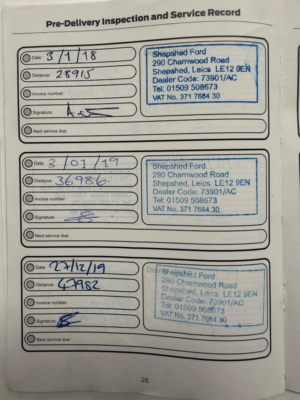 Pre-Delivery Inspection and Service Record
Date: 3/1/18
Distance: 28915
Invoice number:
Signature:
Next service due:
Shepshed Ford
290 Charnwood Road
Shepshed, Leics LE12 9EN
Dealer Code: 73901/AC
Tel: 01509 508673
VAT No. 371 7664 30
Date: 3/01/19
Distance: 36986
Invoice number:
Signature:
Next service due:
Shepshed Ford
290 Charnwood Road
Shepshed, Leics LE12 9EN
Dealer Code: 73901/AC
Tel: 01509 508673
VAT No. 371 7664 30
Date: 27/12/19
Distance: 47982
Invoice number:
Signature:
Next service due:
Shepshed Ford
290 Charnwood Road
Shepshed, Leics LE12 9EN
Dealer Code: 73901/AC
Tel: 01509 508673
VAT No. 371 7664 30
26